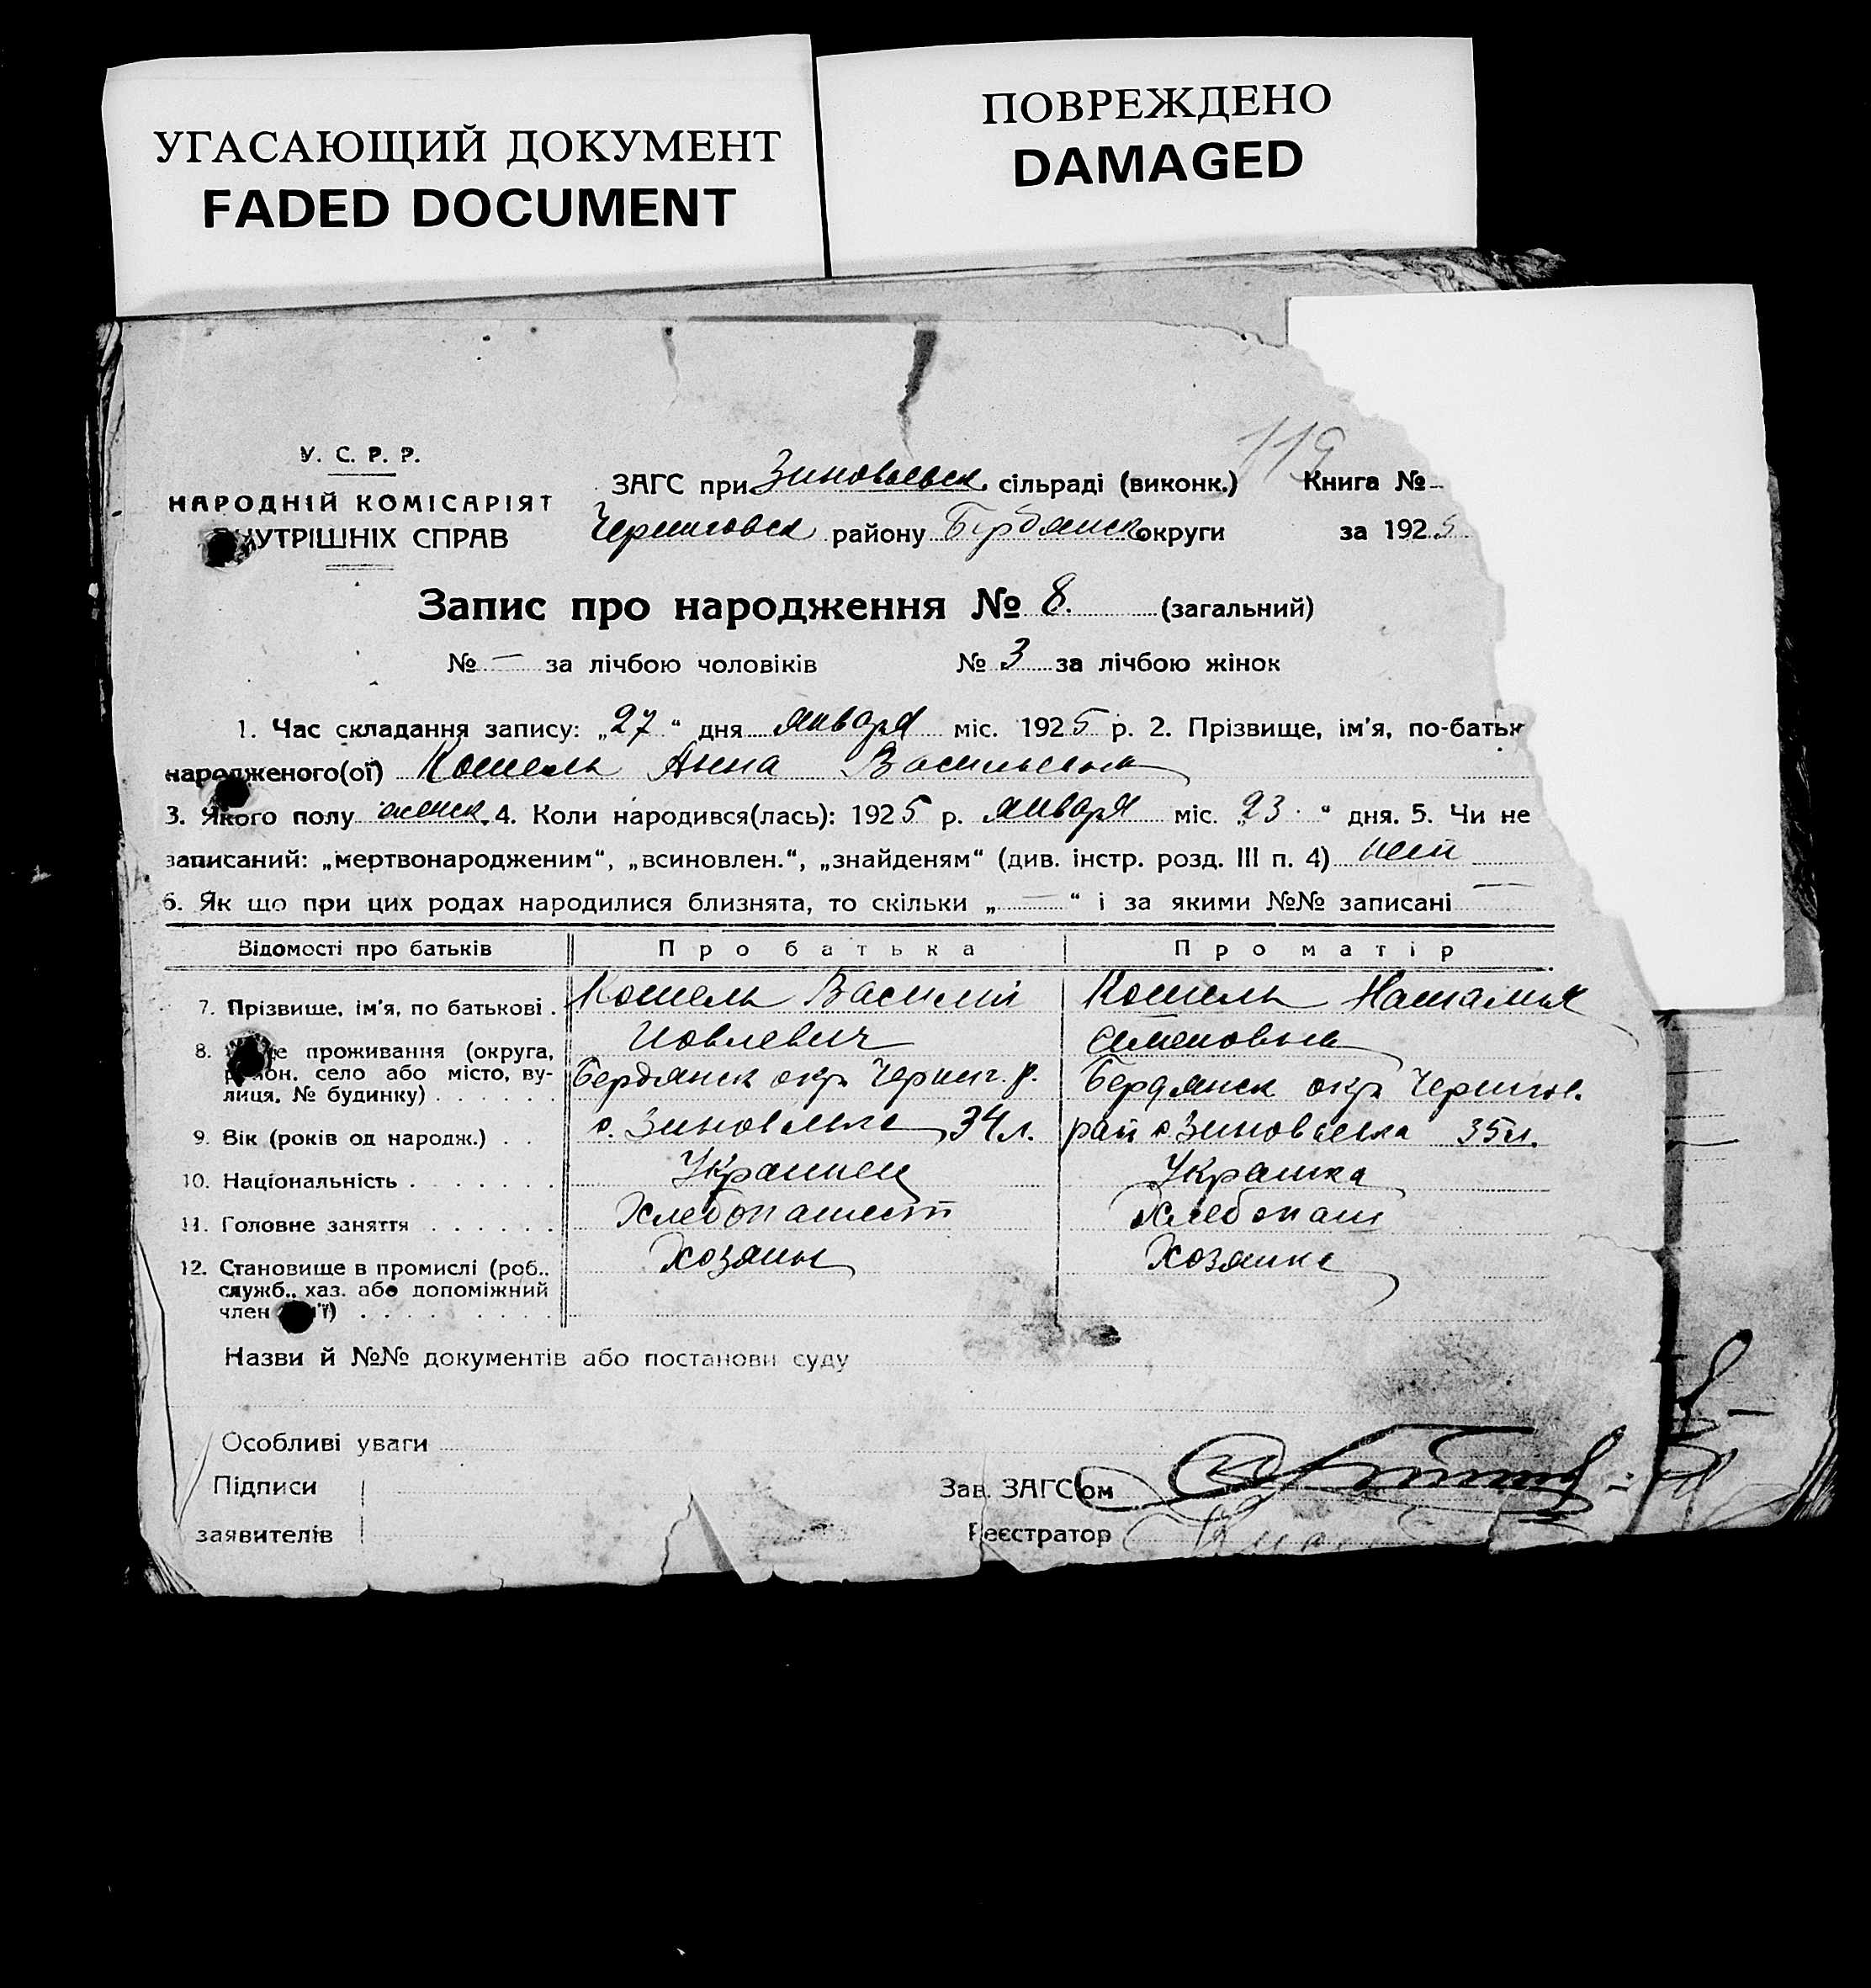 УГАСАЮЩИЙ ДОКУМЕНТ
FADED DOCUMENT
ПОВРЕЖДЕНО
DAMAGED
119
У. С. Р. Р.
НАРОДНІЙ КОМІСАРІЯТ
ВНУТРІШНІХ СПРАВ
ЗАГС при Зиновьевск. сільраді (виконк.) Книга №
Черниговск району Бердянск округи за 1925
Запис про народження № 8. (загальний)
№ — за лічбою чоловіків № 3 за лічбою жінок
1. Час складання запису: „27“ дня января міс. 1925 р. 2. Прізвище, ім'я, по-батьк
народженого(ої) Кошель Анна Васильевна
3. Якого полу женск. 4. Коли народився(лась): 1925 р. января міс. „23“ дня. 5. Чи не
записаний: „мертвонародженим“, „всиновлен.“, „знайденям“ (див. інстр. розд. III п. 4) нет
6. Як що при цих родах народилися близнята, то скільки „—“ і за якими №№ записані —
Відомості про батьків Про батька Про матір
7. Прізвище, ім'я, по батькові . Кошель Василий Кошель Наталия
Иовлевич Семеновна
8. проживання (округа, район, село або місто, вулиця, № будинку) . . . . . . Бердянск окр. Черниг. р. Бердянск окр. Черигов.
9. Вік (років од народж.) . . с. Зиновьевка 34 л. рай с. Зиновьевка 35 л.
10. Національність . . . . . . . Украинец Украинка
11. Головне заняття . . . . . . Хлебопашест Хлебопаш
12. Становище в промислі (роб., служб., хаз. або допоміжний член сім'ї) . . . . . . . . . Хозяин Хозяйка
Назви й №№ документів або постанови суду
Особливі уваги
Підписи
Зав. ЗАГСом
заявителів
Реєстратор